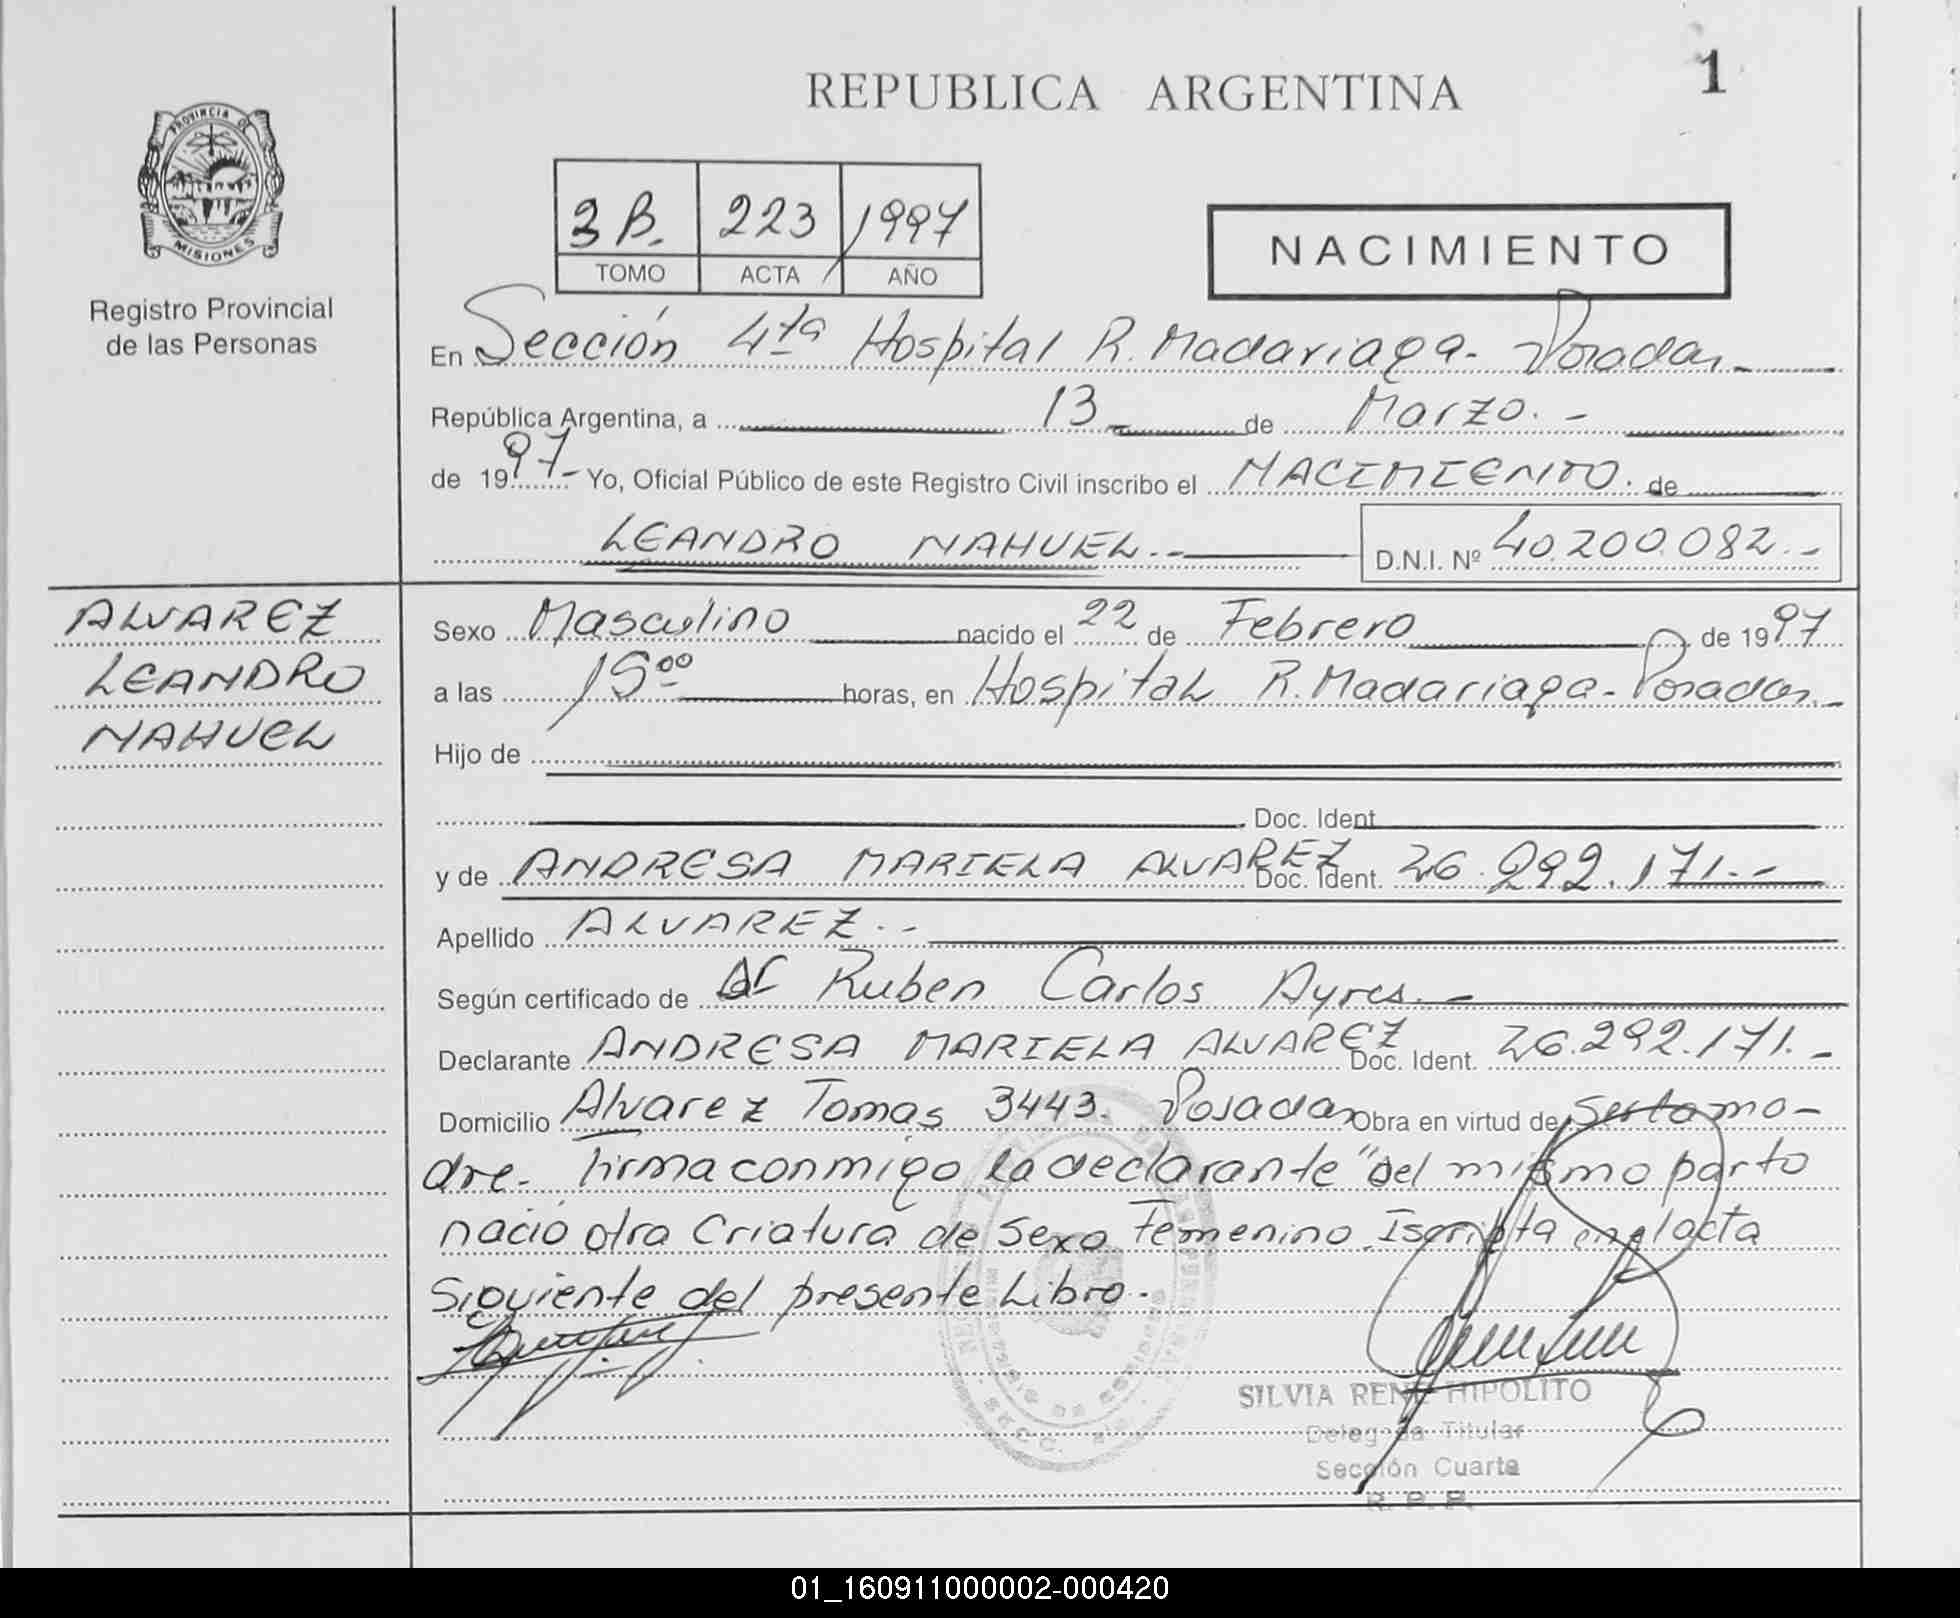 REPUBLICA ARGENTINA
1
PROVINCIA DE
MISIONES
Registro Provincial
de las Personas
3 B. 223 1997
TOMO ACTA AÑO
NACIMIENTO
En Sección 4ta Hospital R. Madariaga - Posadas -
República Argentina, a 13 - de Marzo. -
de 1997- Yo, Oficial Público de este Registro Civil inscribo el NACIMIENTO. de
LEANDRO NAHUEL. - D.N.I. Nº 40.200.082. -
ALVAREZ
LEANDRO
NAHUEL
Sexo Masculino nacido el 22 de Febrero de 1997
a las 15 00 horas, en Hospital R. Madariaga - Posadas. -
Hijo de
Doc. Ident.
y de ANDRESA MARIELA ALVAREZ Doc. Ident. 26.292.171. -
Apellido ALVAREZ. -
Según certificado de Dr Ruben Carlos Ayres. -
Declarante ANDRESA MARIELA ALVAREZ Doc. Ident. 26.292.171. -
Domicilio Alvarez Tomas 3443. Posadas Obra en virtud de Ser la ma-
dre. firma conmigo la declarante "Del mismo parto
nació otra Criatura de Sexo Femenino Iscripta en el acta
Siguiente del presente Libro.
SILVIA RENE HIPOLITO
Delegada Titular
Sección Cuarta
R. P. P.
01_160911000002-000420